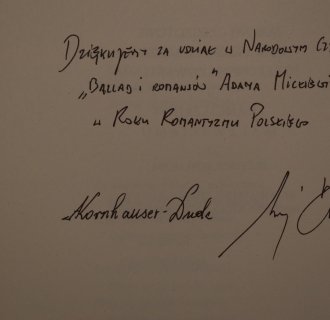 Dziękujemy za udział w Narodowym Cz
„Ballad i romansów" Adama Mickiewi
w Roku Romantyzmu Polskiego
Kornhauser-Duda